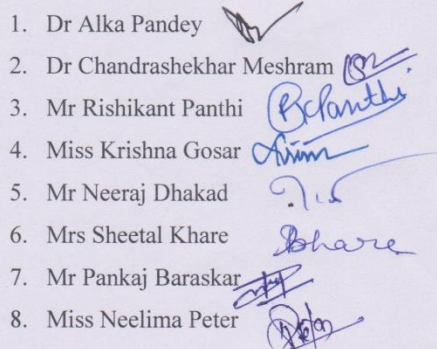 1. Dr Alka Pandey
2. Dr Chandrashekhar Meshram
3. Mr Rishikant Panthi RPanthi
4. Miss Krishna Gosar
5. Mr Neeraj Dhakad
6. Mrs Sheetal Khare
7. Mr Pankaj Baraskar
8. Miss Neelima Peter